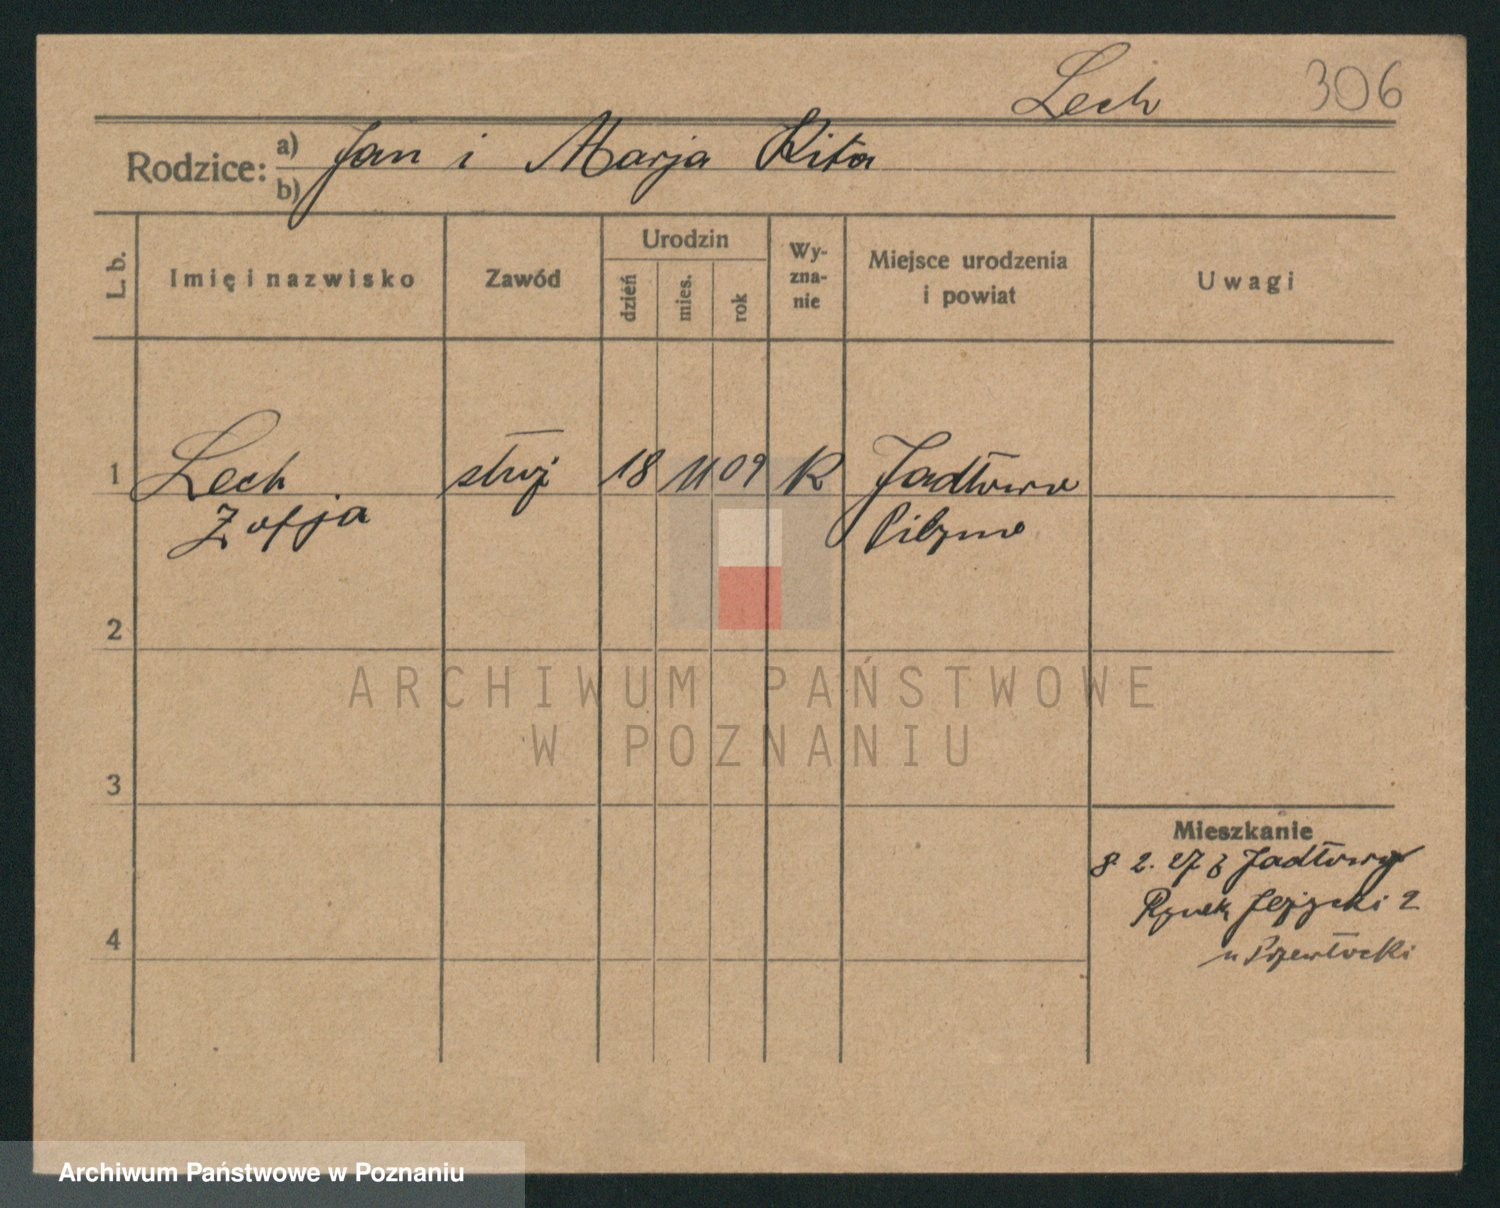 Lech 306
Rodzice: a) Jan i Marja Kita
b)
L. b. Imię i nazwisko Zawód Urodzin dzień mies. rok Wy-zna-nie Miejsce urodzenia i powiat Uwagi
1 Lech służ 18 11 09 R Jadłowa
Zofja Pilzno
2
ARCHIWUM PAŃSTWOWE
W POZNANIU
3
Mieszkanie
8. 2. 27 z Jadłowy
Rynek Jeżycki 2
4
u Przewłocki
Archiwum Państwowe w Poznaniu